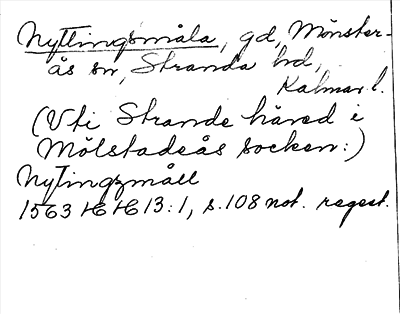 Nyttingsmåla, gd, Mönster-
ås sn, Stranda hd,
Kalmar l.
(Vti Strande häred i
Mölstadeås socken:)
Nytingzmåll
1563 HH 13:1, s. 108 not. regest.